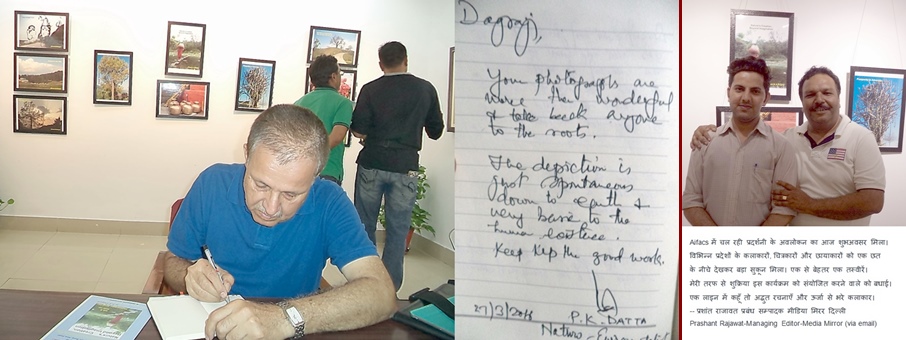 Dagraji,
Your photographs are
more than wonderful
& take back anyone
to the roots.
The depiction is
just spontaneous
down to earth &
very basic to the
human
Keep up the good work.
27/3/2018
P.K. DATTA
Nature
Aifacs में चल रही प्रदर्शनी के अवलोकन का आज शुभअवसर मिला।
विभिन्न प्रदेशों के कलाकारों, चित्रकारों और छायाकारों को एक छत
के नीचे देखकर बड़ा सुकून मिला। एक से बेहतर एक तस्वीरें।
मेरी तरफ से शुक्रिया इस कार्यक्रम को संयोजित करने वाले को बधाई।
एक लाइन में कहूँ तो अद्भुत रचनाएँ और ऊर्जा से भरे कलाकार।
-- प्रशांत राजावत प्रबंध सम्पादक मीडिया मिरर दिल्ली
Prashant Rajawat-Managing Editor-Media Mirror (via email)